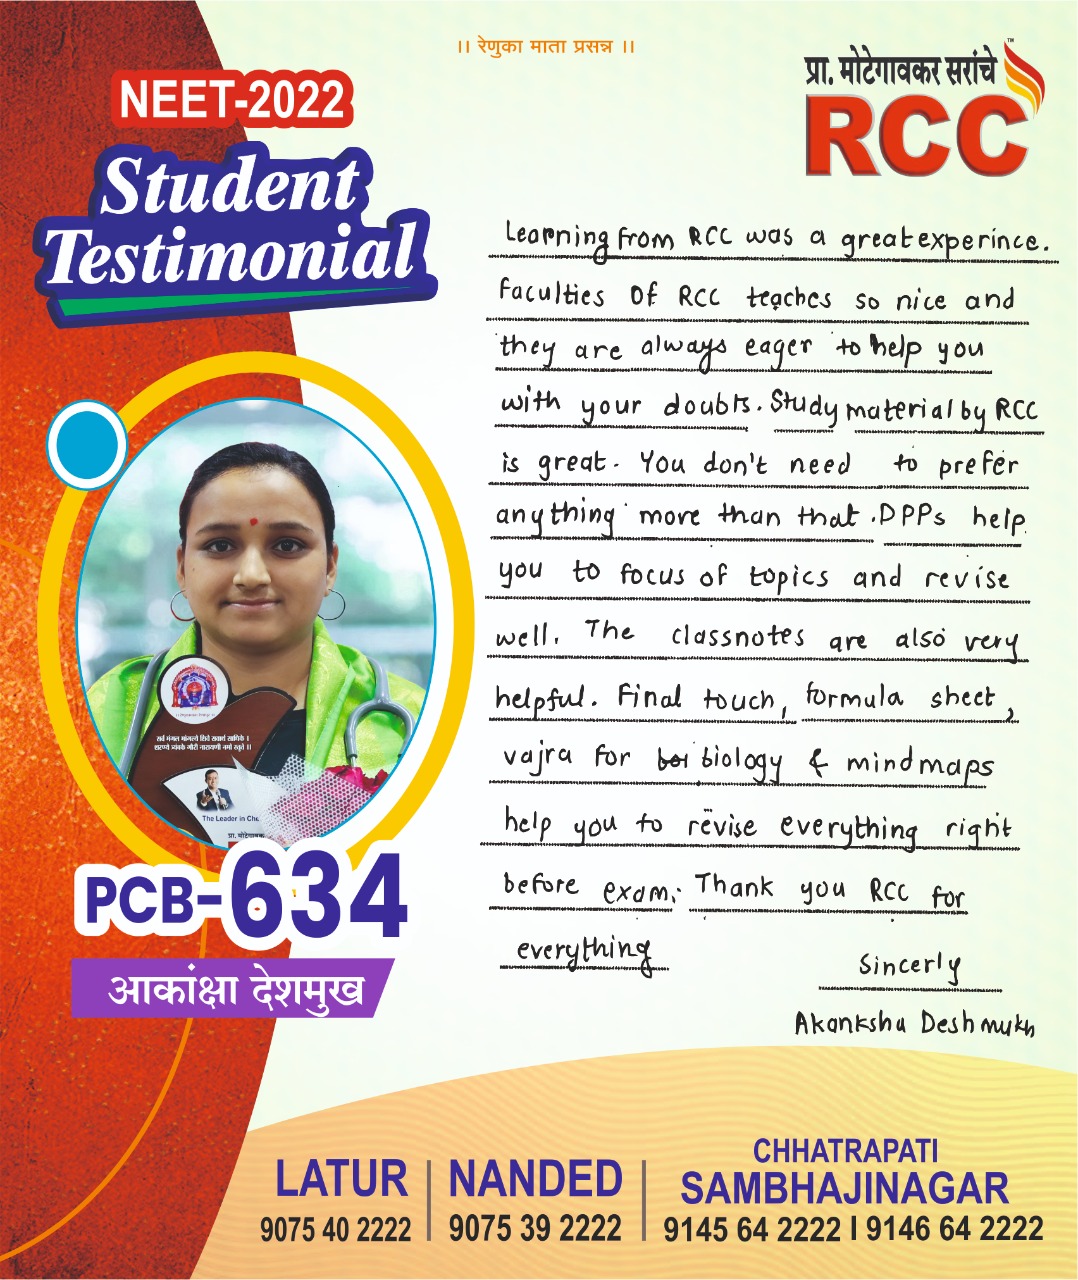 ।। रेणुका माता प्रसन्न ।।
प्रा. मोटेगावकर सरांचे
TM
RCC
NEET-2022
Student
Testimonial
Learning from RCC was a great experince.
Faculties Of RCC teaches so nice and
they are always eager to help you
with your doubts. Study material by RCC
is great. You don't need to prefer
anything more than that. DPPs help
you to focus of topics and revise
well. The classnotes are also very
helpful. Final touch, formula sheet,
vajra for boi biology & mindmaps
help you to revise everything right
before exam. Thank you RCC for
everything
Sincerly
Akanksha Deshmukh
सर्व मंगल मांगल्ये शिवे सर्वार्थ साधिके ।
शरण्ये त्र्यंबके गौरी नारायणी नमो स्तुते ।।
The Leader in Che
प्रा. मोटेगावक
PCB-634
आकांक्षा देशमुख
LATUR
9075 40 2222
NANDED
9075 39 2222
CHHATRAPATI
SAMBHAJINAGAR
9145 64 2222 | 9146 64 2222